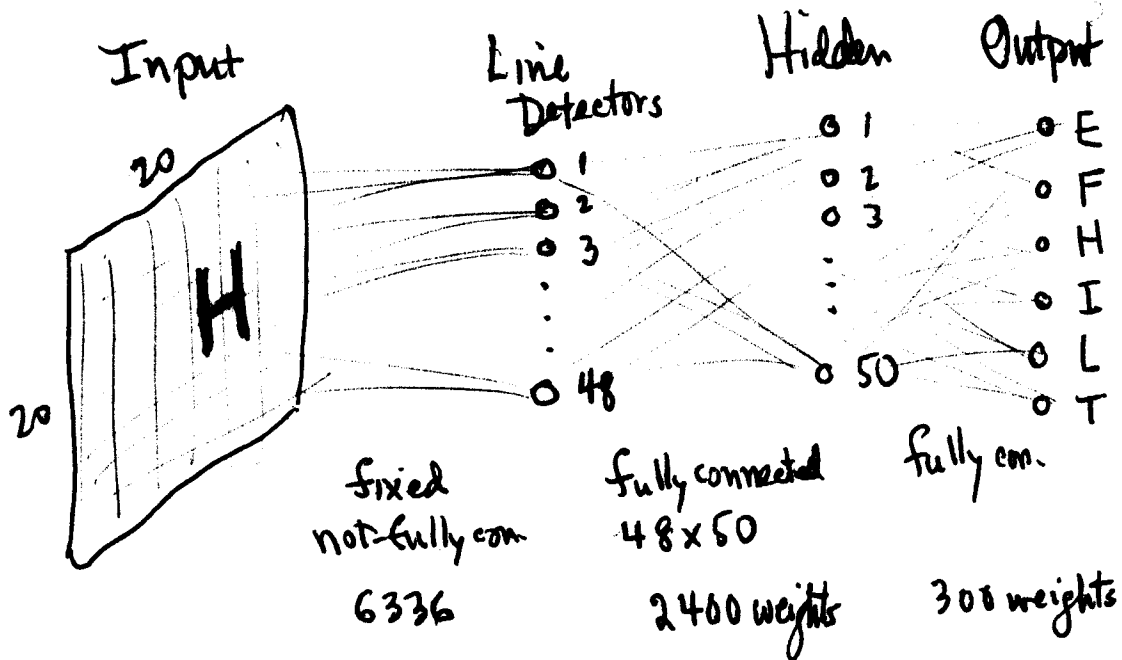 Input
20
20
H
Line
Detectors
1
2
3
48
Hidden
1
2
3
50
Output
E
F
H
I
L
T
fixed
not-fully con.
6336
fully connected
48x50
2400 weights
fully con.
300 weights